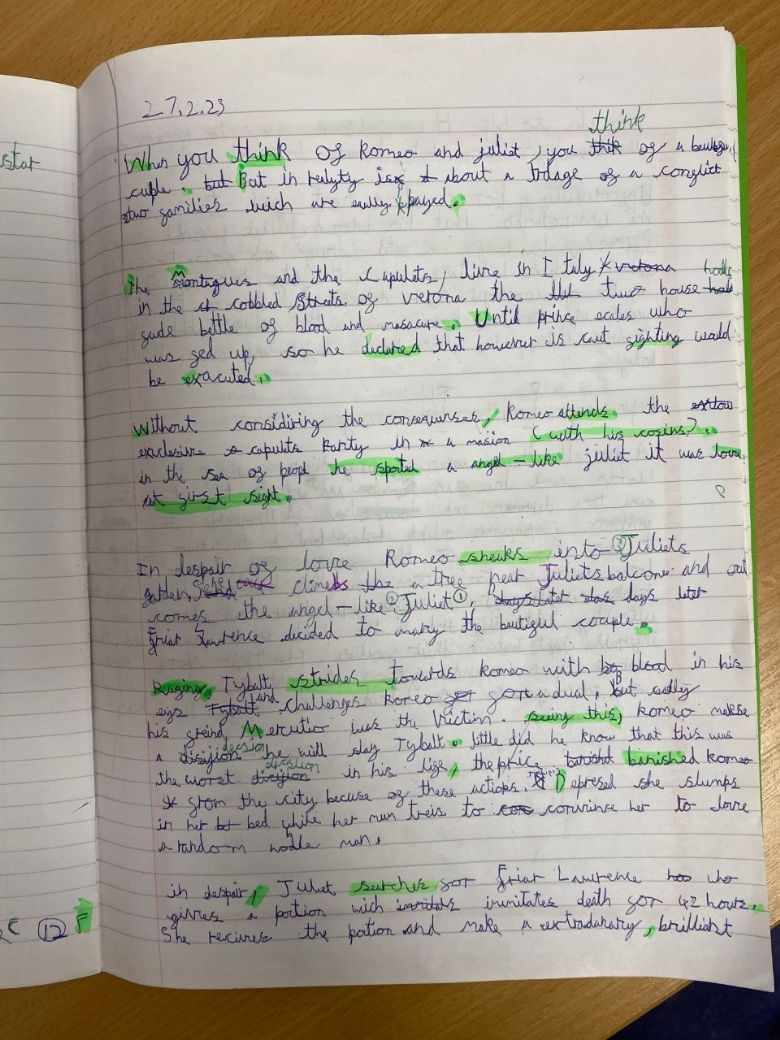 star
27.2.23
think
When you think of Romeo and juliet, you thik of a
cuple. but But in realyty is about a of a conflict
two families wich are payed.
the Montagues and the Capulets, live in Italy verona
in the cobbled Strats of verona the two house
battle of blood and masacure. Until prince ecales who
was fed up, so he declared that however is caut fighting would
be exacuted.
Without considiring the consequnses, Romeo attends the
exclusive capulits Party in a masion (with his cosins?).
in the sea of peopl he spoted a angel-like juliet it was love
at first sight.
In despair of love Romeo sneaks into Juliets
garden, climebs the a tree near Juliets balcone and out
comes the angel-like Juliet, days later days later
Friar Lawrence decided to mary the beutiful couple.
Raging, Tybalt strides towards Romeo with blood in his
eigs Tybalt and challenges Romeo for a dual, But sadly
his freind, Mercutio was the Victim. seeing this, romeo makese
a disijion decsion he will slay Tybalt. little did he know that this was
the worst disijion decsion in his life, the price banished romeo
from the city becuse of these actions. Depresed she slumps
in her bed while her nun treis to convince her to love
a random noble man.
in despair, Juliet searches for Friar Lawrence who
gives a portion wich imitates death for 42 hours.
She recives the potion and make a extradanary, brilliant
C 12 F